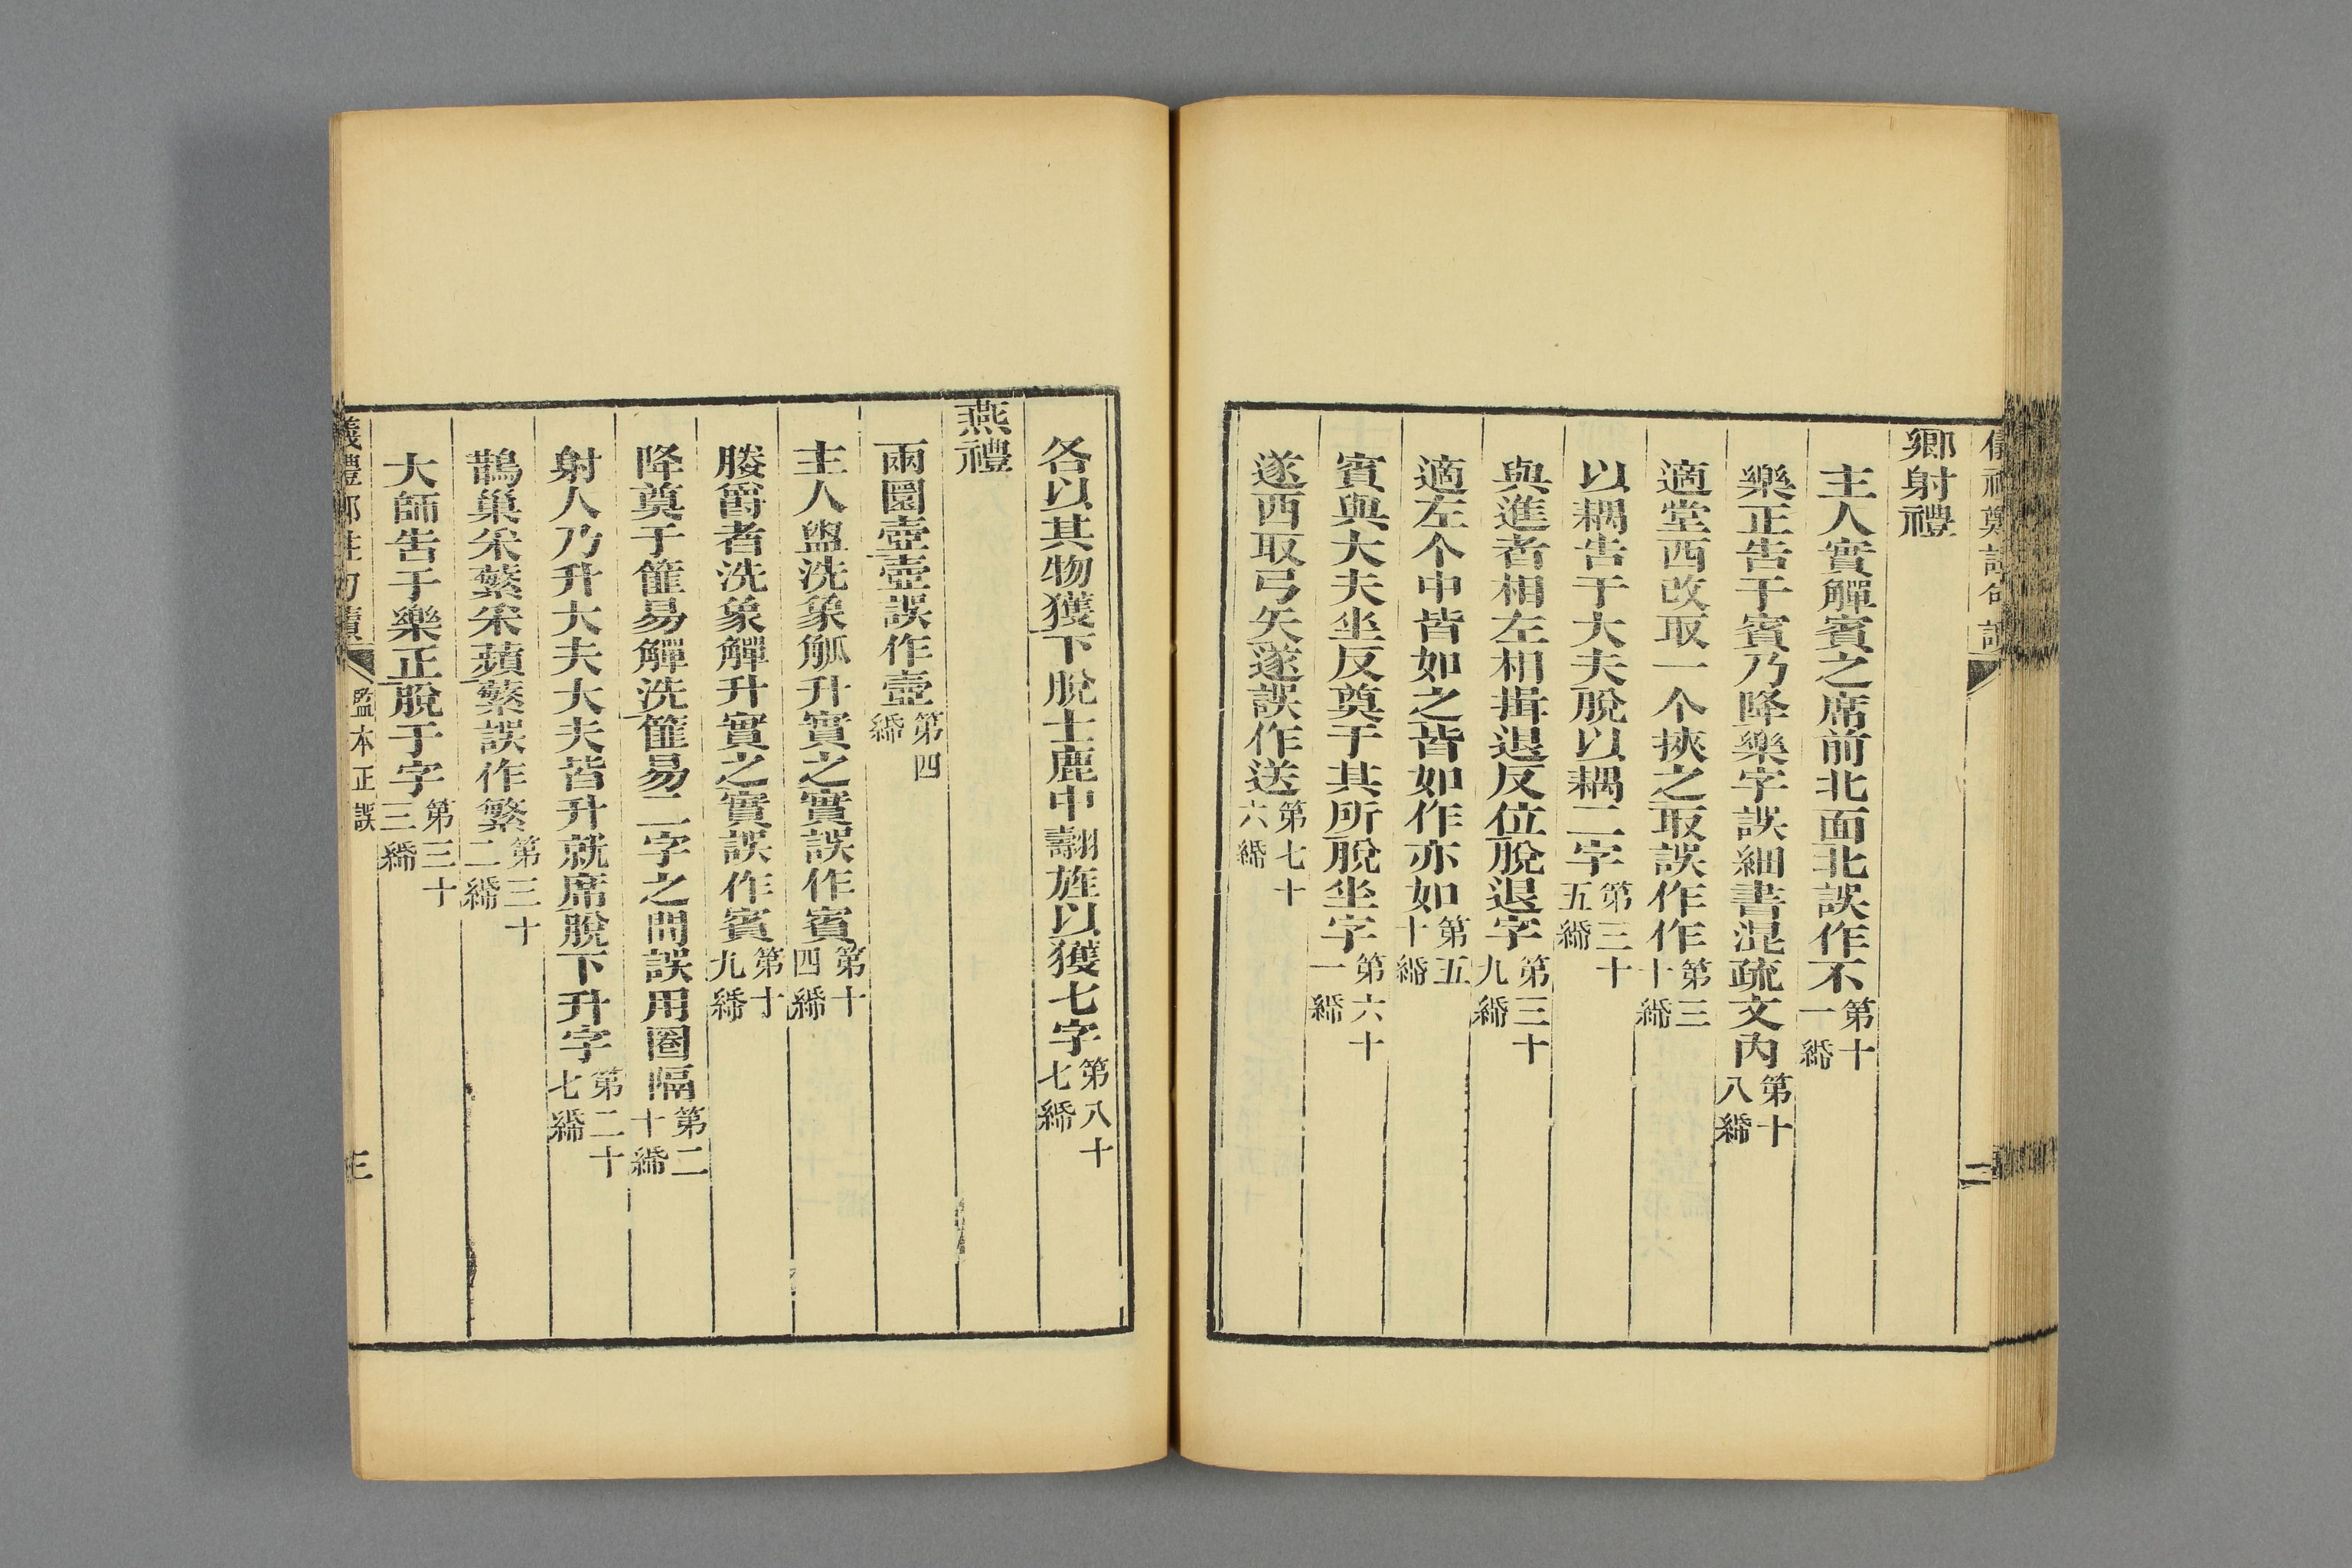 鄉射禮
主人實觶賓之席前北面北誤作不第十一緢
樂正告于賓乃降樂字誤細書混疏文內第十八緢
適堂西改取一个挾之取誤作作第三十緢
以耦告于大夫脫以耦二字第三十五緢
與進者相左相揖退反位脫退字第三十九緢
適左个中皆如之皆如作亦如第五十緢
賓與大夫坐反奠于其所脫坐字第六十一緢
遂西取弓矢遂誤作送第七十六緢
各以其物獲下脫士鹿中翿旌以獲七字第八十七緢
燕禮
兩圜壺壺誤作壼第四緢
主人盥洗象觚升實之實誤作賓第十四緢
媵爵者洗象觶升實之實誤作賓第十九緢
降奠于篚易觶洗篚易二字之間誤用圈隔第二十緢
射人乃升大夫大夫皆升就席脫下升字第二十七緢
鵲巢采蘩采蘋蘩誤作繁第三十二緢
大師告于樂正脫于字第三十三緢
監本正誤
三